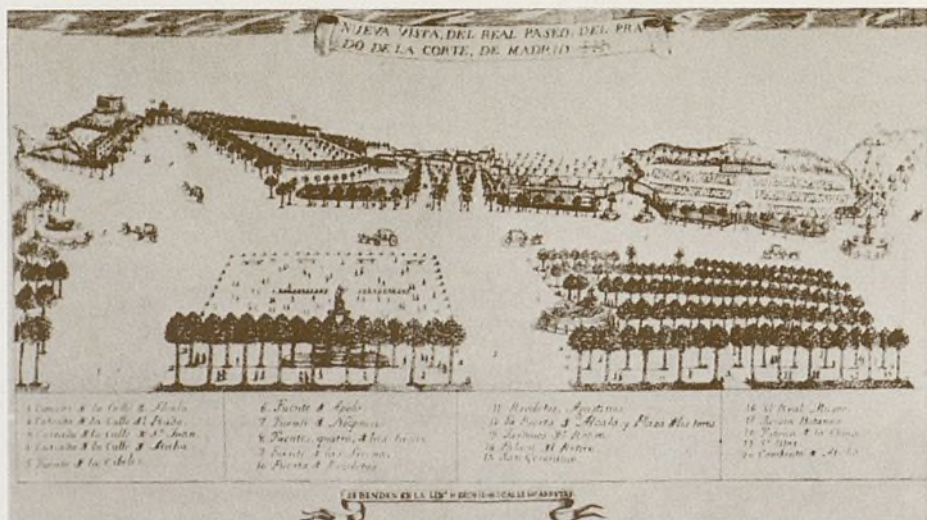 NUEVA VISTA, DEL REAL PASEO, DEL PRA-
DO DE LA CORTE, DE MADRID
1 Entrada de la Calle de Alcala
2 Entrada de la Calle del Prado
3 Entrada de la Calle de Sn. Juan
4 Entrada de la Calle de Atocha
5 Fuente de la Cibeles
6 Fuente de Apolo
7 Fuente de Neptuno
8 Fuentes, quatro, de las
9 Fuente de las
10 Puerta de Recoletos
11 Recoletos, Agustinos
12 la Puerta de Alcala y Plaza de los toros
13 Jardines del Retiro
14 Palacio del Retiro
15 San Geronimo
16 El Real Museo
17 Jardin Botanico
18 Fabrica de la China
19 Sn. Blas
20 Combento de Atocha
SE BENDEN EN LA CALLE DE CARRETAS